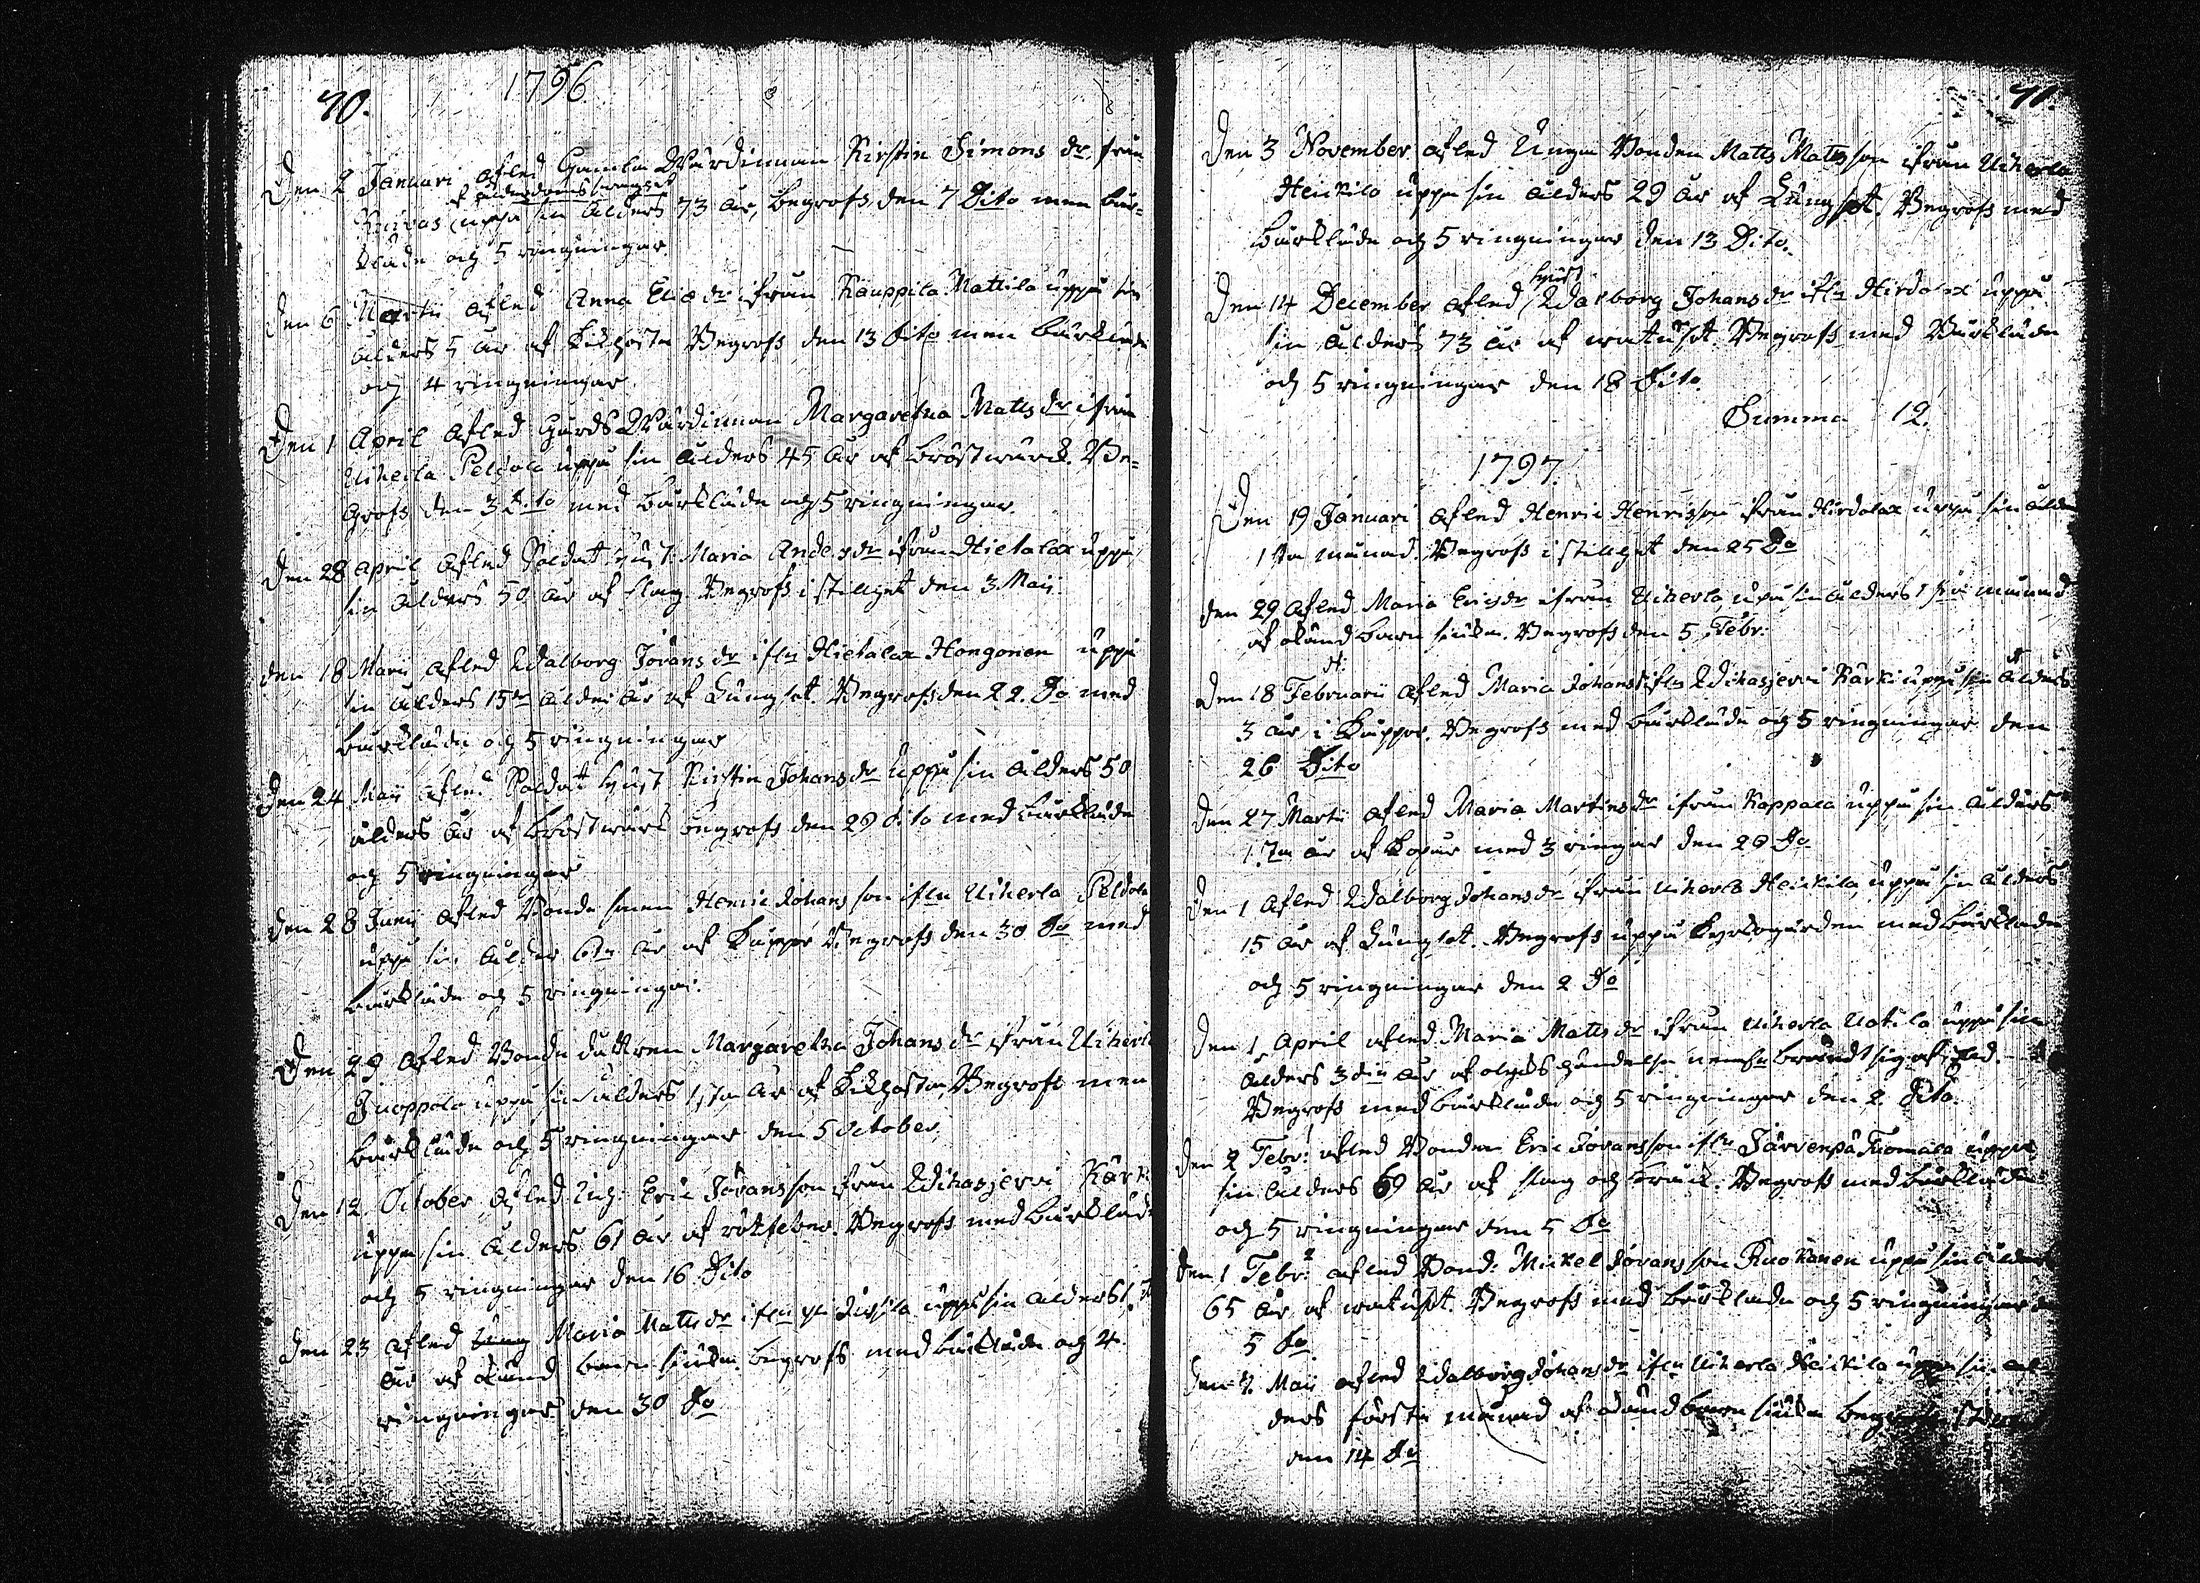 70.
1796
Den 2 Januari afled Gamla Wärdinnan Kirstin Simons dr. från
af ålderdoms
uppå sin ålders 73 år, begrofs den 7 Dito men bår-
kläde och 5 ringningar.
Den 6 Martii afled Anna Elia dr ifrån Kauppila Mattila uppå sin
ålders 5 år af Kikhosta Begrofs den 13 Dito men bårkläde
och 4 ringningar
Den 1 April afled Gårds Wärdinnan Margaretha Matts dr, ifrån
Uiherla Peldola uppå sin ålders 45 år af bröstwärck. Be-
grofs den 3 Dito med bårkläde och 5 ringningar.
Den 28 April afled Soldat Hust. Maria Anders dr ifrån Hietalax uppå
sin ålders 50 år af slag. Begrofs i stillhet den 3 Maij.
Den 18 Marii afled Walborg Jörans dr ifrn Hietalax Hongonen uppå
sin ålders 15de ålders år af Lungsot. Begrofs den 22. Do med
bårkläde och 5 ringningar
Den 24 Maij afled Soldat Hust Kirstin Johans dr uppå sin ålders 50
ålders år af bröstwärk begrofs den 29 dito med bårkläde
och 5 ringningar
Den 28 Junij afled Bonde sonen Henric Johans son ifrn Uiherla Peldola
uppå sin ålder 6te år af Kåppor Begrofs den 30 Do med
bårkläde och 5 ringningar.
Den 29 Afled Bonde dottren Margaretha Johans dr ifrån Uiherl
Juoppola uppå sin ålders 1sta år af Kikhosta, Begrofs men
bårkläde och 5 ringningar den 5 October,
Den 12. October, Afled Eric Jöransson ifrån Wihasjerwi Kärk
uppå sin ålders 61 år af rötfeber. Begrofs med bårkläde
och 5 ringningar den 16 Dito
Den 23 afled Ung Maria Matts dr ifrn uppå sin ålders 1.
år af okänd barn siukdom. begrofs med bårkläde och 4.
ringningar den 30 Do
71.
Den 3 November afled Unga Bonden Matts Matts son ifrån Uiherla
Heikkilä uppå sin ålders 29 år af Lungsot. Begrofs med
bårkläde och 5 ringningar den 13 Dito.
hust
Den 14 December afled Walborg Johans dr ifrn Hirdalax uppå
sin ålders 73 år af watusot. Begrofs med Bårkläde
och 5 ringningar den 18 Dito.
Summa 12.
1797.
Den 19 Januari afled Henric Henricsson ifrån Hirdalax uppå sin ålde
1sta månad. Begrofs i stillhet den 25 Do
Den 29 Afled Maria Erics dr ifrån Uiherla, uppå sin ålders 1sta månad
af okänd barn siukdom. Begrofs den 5 Febr:
Den 18 Februarii afled Maria Johans dr ifrn Wihasjerwi Kärki uppå sin ålders
3 år i Kåppor. Begrofs med bårkläde och 5 ringningar den
26 Dito
Den 27 Martii afled Maria Martins dr ifrån Kappala uppå sin ålders
1sta år af Kopur med 3 ringar den 28 Do
Den 1 Afled Walborg Johans dr ifrån Uiherla Heikkilä, uppå sin ålders
15 år af Lungsot. Begrofs uppå Kyrkogården med bårkläde
och 5 ringningar den 2 Do
Den 1 April afled Maria Matts dr ifrån Uiherla Uotila uppå sin
ålders 3die år af olycks händelse nemln brändt sig af Eld.
Begrofs med bårkläde och 5 ringningar den 2. Dito.
Den 2 Febr: afled Bonden Eric Jöransson ifrn Järvenpä Tuomala uppå
sin ålders 69 år af slag och bråck. Begrofs med bårkläde
och 5 ringningar den 5 Do
Den 1 Febr: afled Bond: Mickel Jöransson Ruokanen uppå sin ålders
65 år af watusot. Begrofs med bårkläde och 5 ringningar d
5 Do
Den 7. Maij afled Walborg Johans dr ifrn Uiherla Heikkilä uppå sin ål
ders första månad af okänd barn siukdom begrofs
den 14 Do